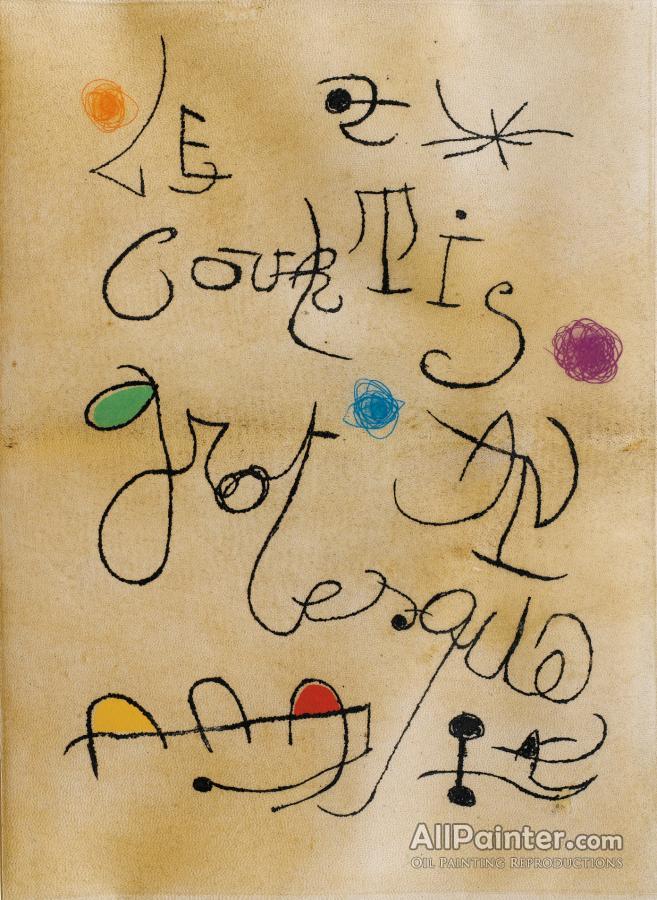 LE
COURTiS
grotesque
AllPainter.com
OIL PAINTING REPRODUCTIONS